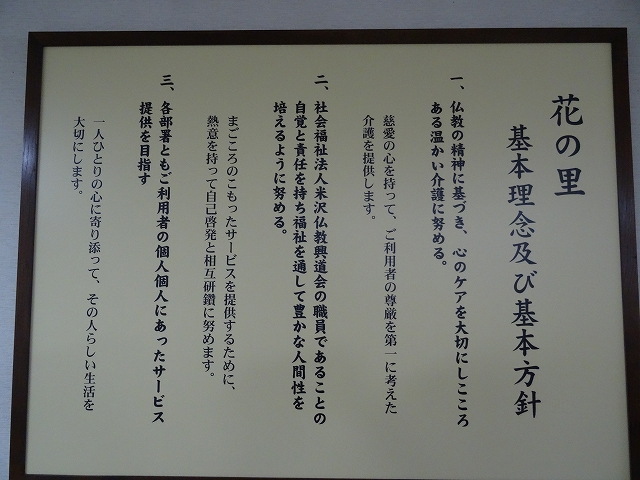 花の里
基本理念及び基本方針
一、仏教の精神に基づき、心のケアを大切にしこころ
ある温かい介護に努める。
慈愛の心を持って、ご利用者の尊厳を第一に考えた
介護を提供します。
二、社会福祉法人米沢仏教興道会の職員であることの
自覚と責任を持ち福祉を通して豊かな人間性を
培えるように努める。
まごころのこもったサービスを提供するために、
熱意を持って自己啓発と相互研鑽に努めます。
三、各部署ともご利用者の個人個人にあったサービス
提供を目指す
一人ひとりの心に寄り添って、その人らしい生活を
大切にします。